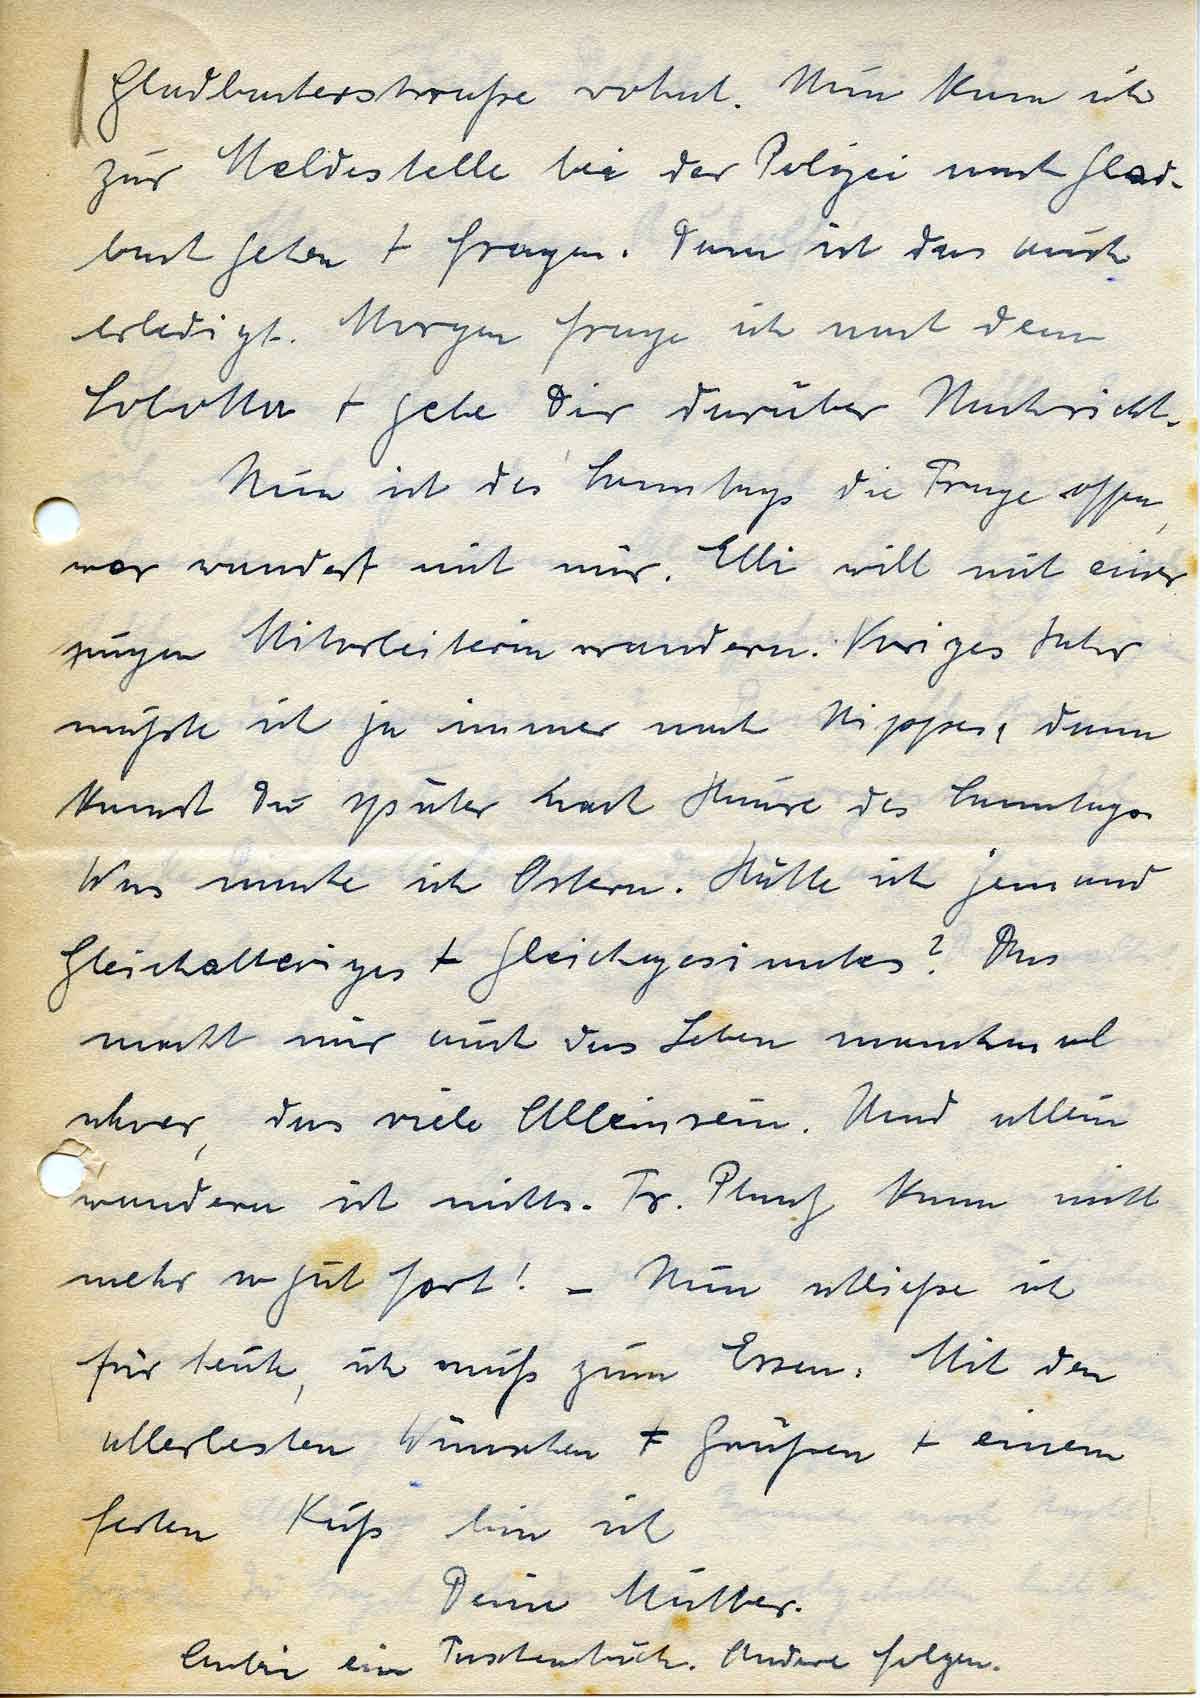 Gladbacherstraße wohnt. Nun kann ich
zur Meldestelle bei der Polizei nach Glad-
bach gehen + fragen. Dann ist das auch
erledigt. Morgen frage ich nach dem
Sobotta + gebe Dir darüber Nachricht.
Nun ist des Sonntags die Frage offen,
wer wandert mit mir. Elli will mit einer
jungen Mitarbeiterin wandern. Voriges Jahr
mußte ich ja immer nach Nippes, dann
kamst Du später nach Hause des Sonntags.
Was mache ich Ostern. Hätte ich jemand
Gleichalteriges + Gleichgesinntes? Das
macht mir auch das Leben manchmal
schwer, das viele Alleinsein. Und allein
wandern ist nichts. Fr. kann nicht
mehr so gut fort! – Nun schließe ich
für heute, ich muß zum Essen. Mit den
allerbesten Wünschen + Grüßen + einem
festen Kuß bin ich
Deine Mutter.
Anbei ein Taschentuch. Andere folgen.